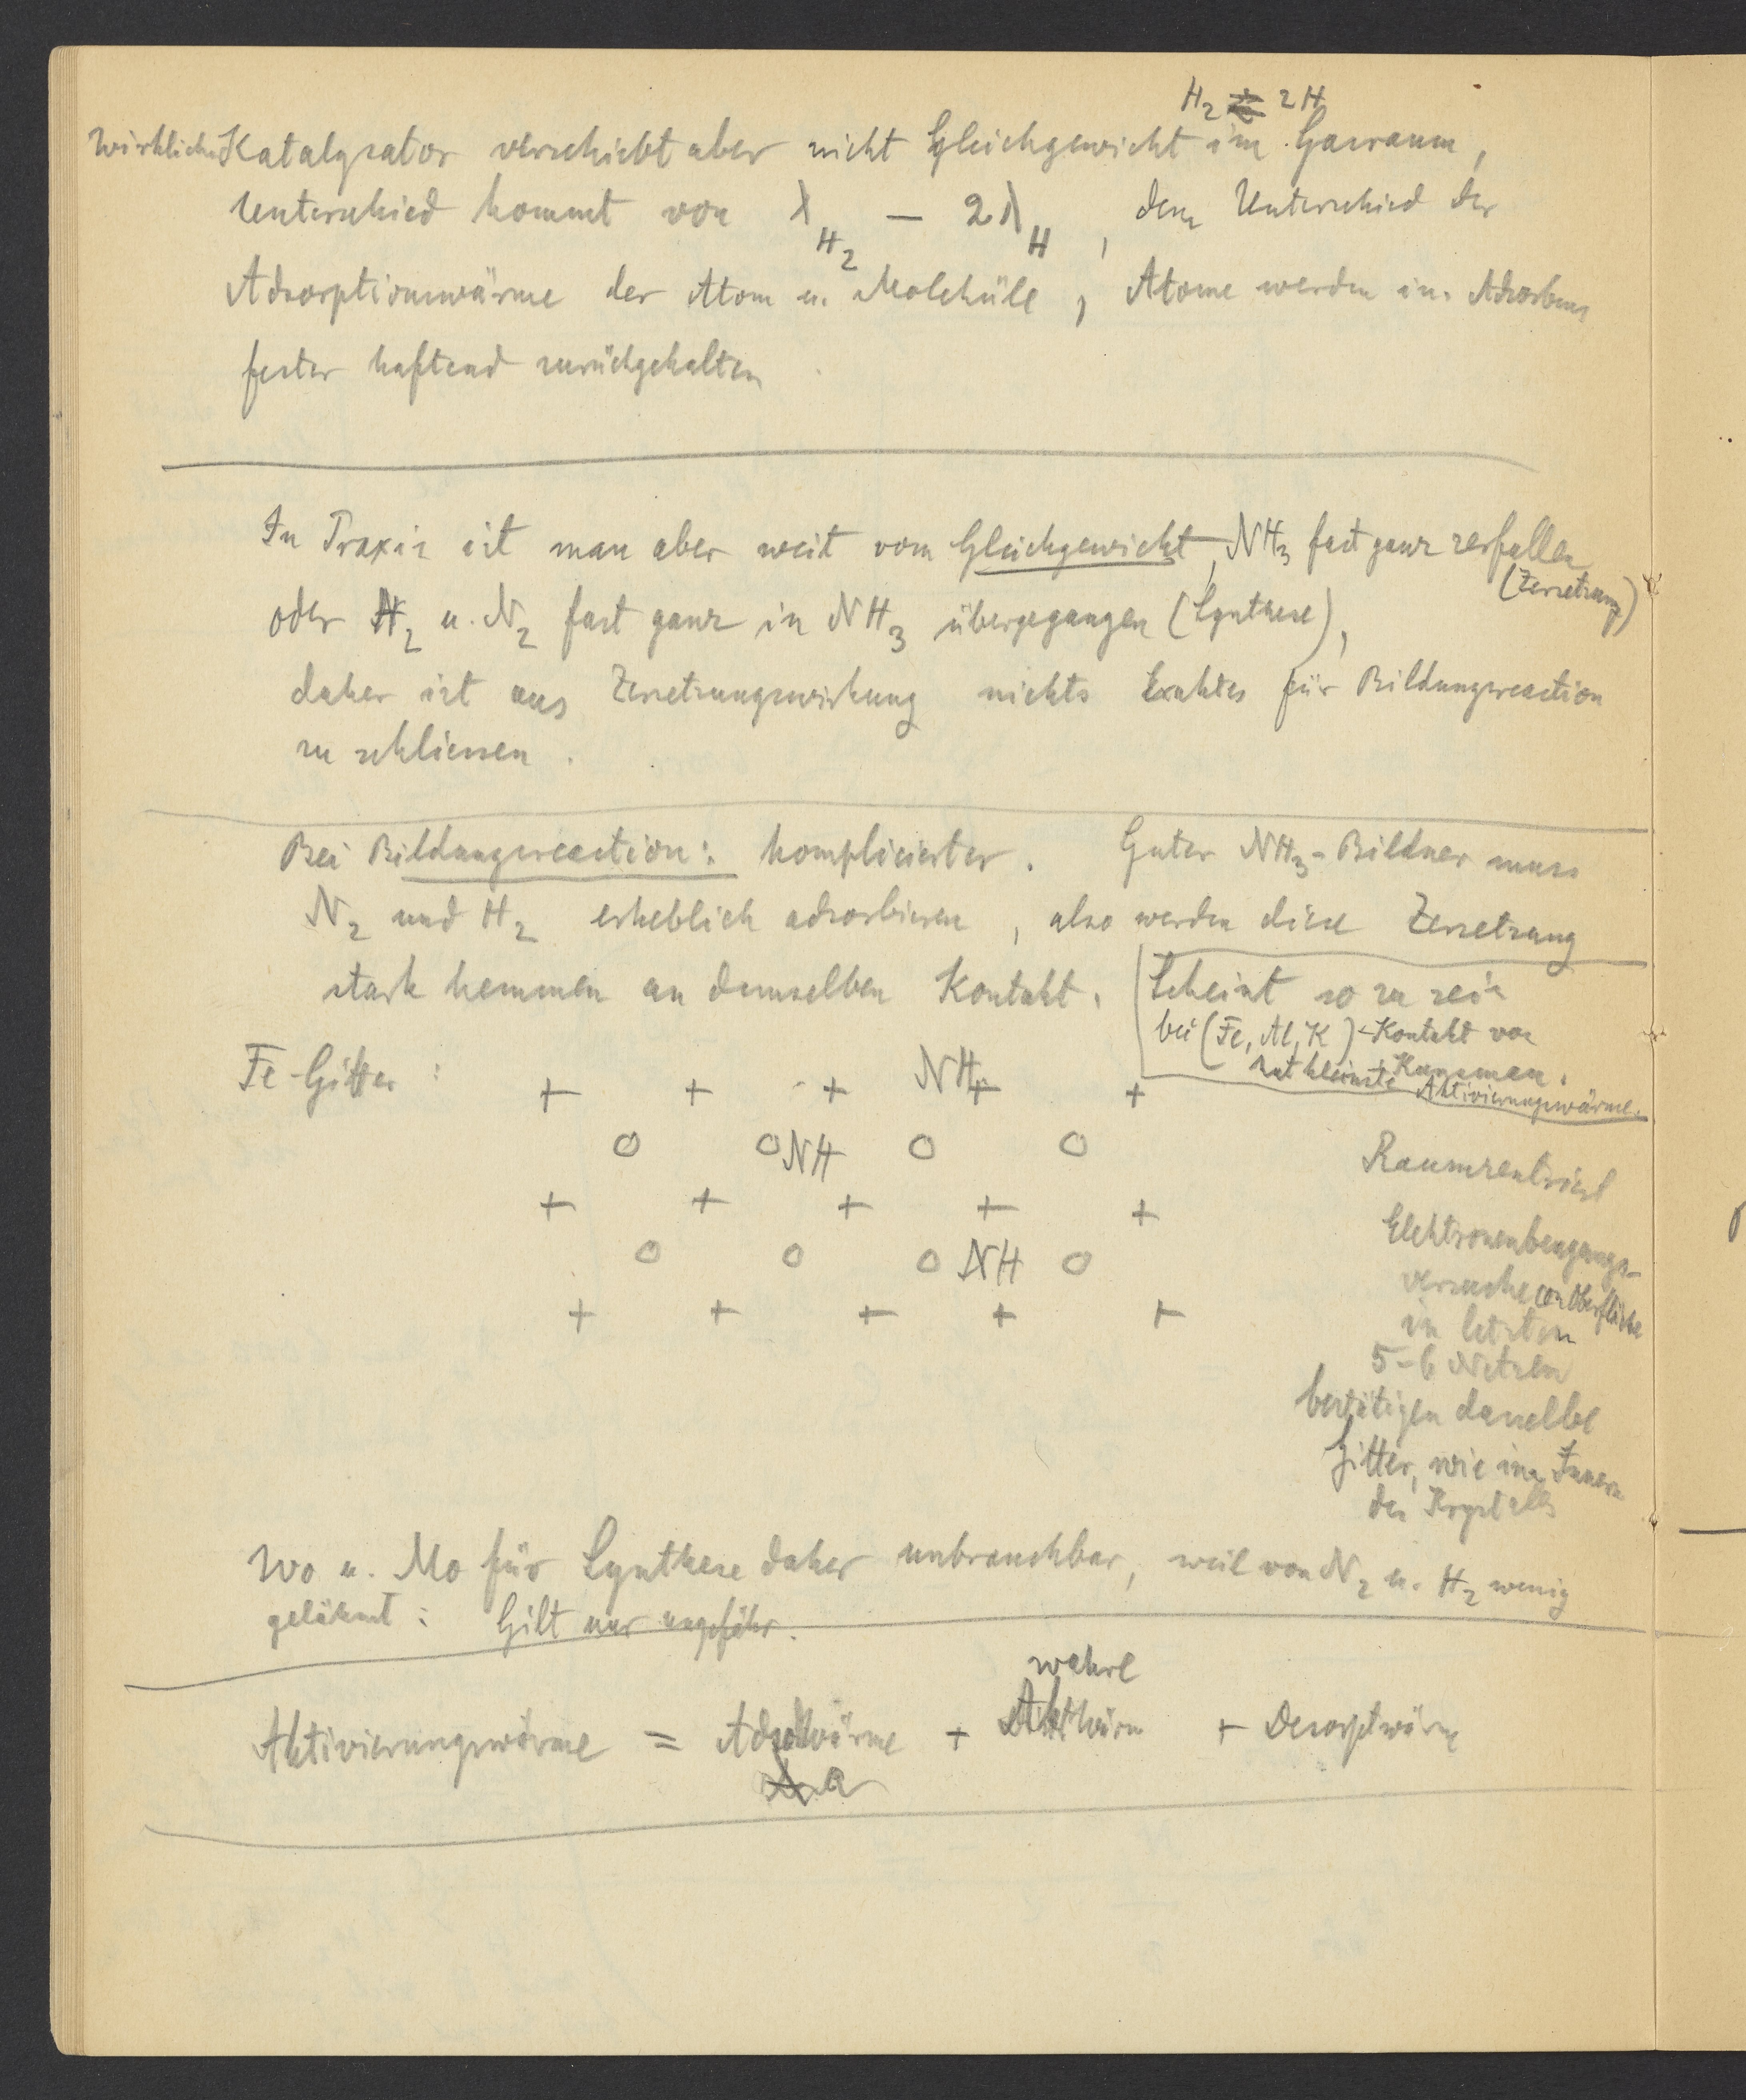 H₂ ⇄ 2H
wirklicher Katalysator verschiebt aber nicht Gleichgewicht im Gasraum,
Unterschied kommt von λ_H₂ — 2λ_H, dem Unterschied der
Adsorptionswärme der Atom u. Moleküle, Atome werden im Adsorbens
fester haftend zurückgehalten
In Praxis ist man aber weit vom Gleichgewicht, NH₃ fast ganz zerfallen
(Zersetzung)
oder H₂ u. N₂ fast ganz in NH₃ übergegangen (Synthese),
daher ist aus Zersetzungswirkung nichts Exaktes für Bildungsreaction
zu schliessen.
Bei Bildungsreaction: komplicierter. Guter NH₃-Bildner muss
N₂ und H₂ erheblich adsorbieren, also werden diese Zersetzung
stark hemmen an demselben Kontakt.
Scheint so zu sein
bei (Fe, Al, K)-Kontakt von
Kunsman.
hat kleinste Aktivierungswärme.
Fe-Gitter:
+ + + NH₃ + +
o o NH o o
+ + + + +
o o o NH o
+ + + + +
Raumzentriert
Elektronenbeugungs-
versuche an Oberfläche
in letzten
5-6 Netzen
bestätigen dasselbe
Gitter, wie im Innern
des Krystalls
Wo u. Mo für Synthese daher unbrauchbar, weil von N₂ u. H₂ wenig
gelähmt: Gilt nur ungefähr.
wahre
Aktivierungswärme = Adsobwärme + Aktwärm + Desorptwärme